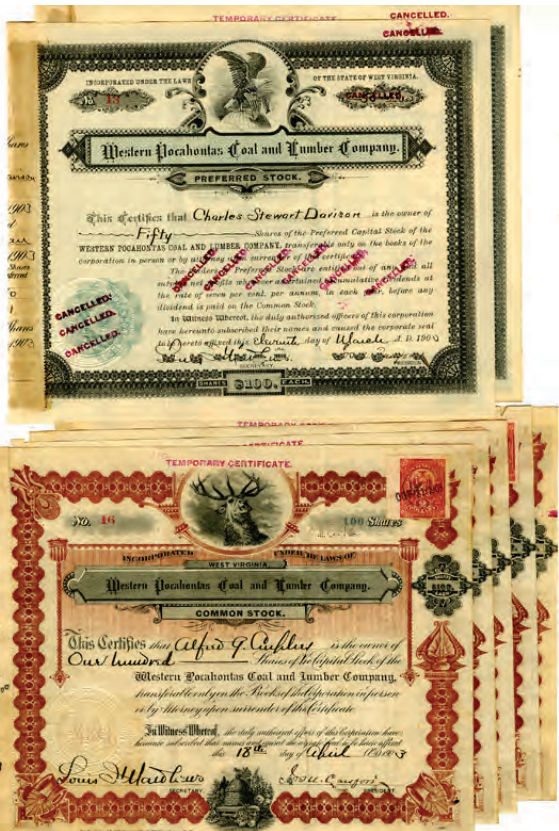 TEMPORARY CERTIFICATE
CANCELLED.
CANCELLED.
INCORPORATED UNDER THE LAWS
OF THE STATE OF WEST VIRGINIA.
No. 13
CANCELLED.
Western Pocahontas Coal and Lumber Company.
PREFERRED STOCK.
This Certifies that Charles Stewart Davison is the owner of
Fifty Shares of the Preferred Capital Stock of the
WESTERN POCAHONTAS COAL AND LUMBER COMPANY, transferable only on the books of the
corporation in person or by attorney upon surrender of this certificate.
The holders of Preferred Stock are entitled out of any and all
net profits ascertained cumulative dividends at
the rate of seven per cent. per annum, in each year, before any
dividend is paid on the Common Stock.
In Witness Whereof, the duly authorized officers of this corporation
have hereunto subscribed their names and caused the corporate seal
to hereto affixed this day of March A.D. 190
CANCELLED.
CANCELLED.
CANCELLED.
CANCELLED.
CANCELLED.
CANCELLED.
CANCELLED.
CANCELLED.
CANCELLED.
SECRETARY.
SHARES $100. EACH.
1903
1903
Shares
1903
TEMPORARY
CERTIFICATE
TEMPORARY CERTIFICATE.
No. 16
100 Shares
INCORPORATED UNDER THE LAWS OF
WEST VIRGINIA
Western Pocahontas Coal and Lumber Company.
COMMON STOCK.
This Certifies that Alfred G. is the owner of
One hundred Shares of the Capital Stock of the
Western Pocahontas Coal and Lumber Company,
transferable only on the Books of the Corporation in person
or by Attorney upon surrender of this Certificate.
In Witness Whereof, the duly authorized officers of this Corporation have
hereunto subscribed their names and caused the corporate Seal to be hereto affixed
this 18th day of April A.D. 1903
Louis
SECRETARY
PRESIDENT
$100